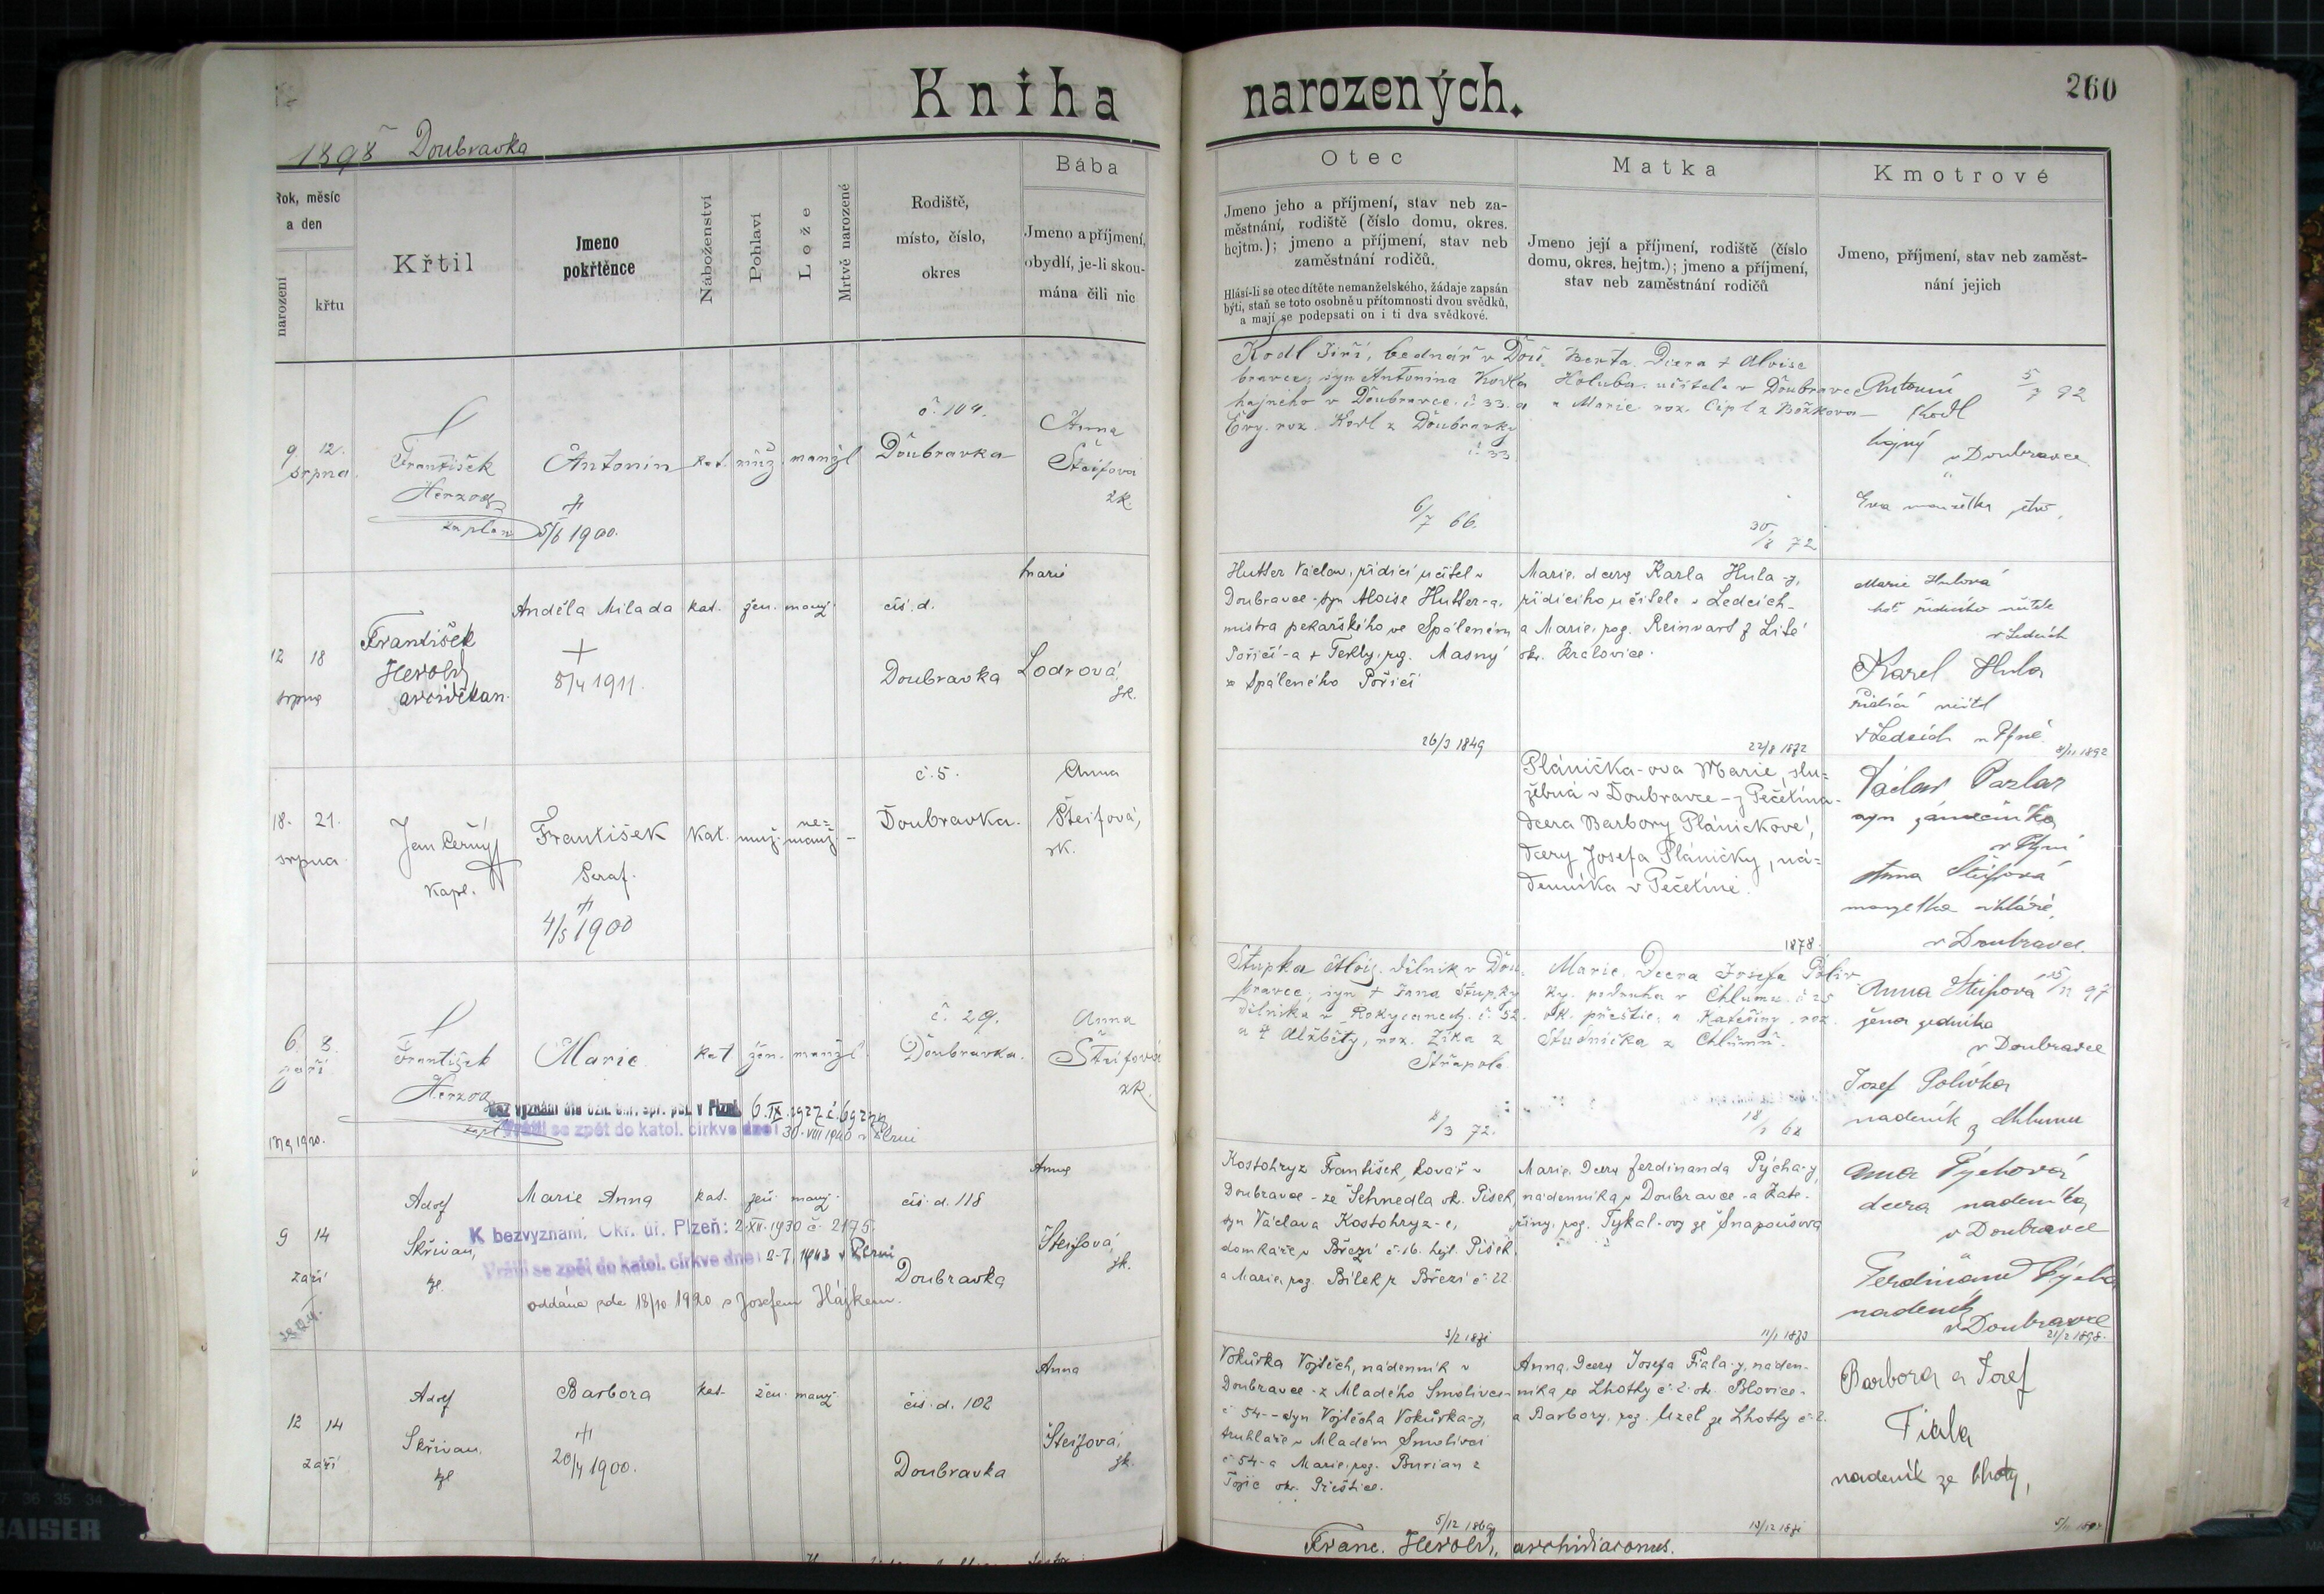 Kniha narozených.
260
1898 Doubravka
Rok, měsíc a den
narození
křtu
Křtil
Jmeno pokřtěnce
Náboženství
Pohlaví
Lože
Mrtvě narozené
Rodiště,
místo, číslo,
okres
Bába
Jmeno a příjmení,
obydlí, je-li skou-
mána čili nic
Otec
Jmeno jeho a příjmení, stav neb za-
městnání, rodiště (číslo domu, okres.
hejtm.); jmeno a příjmení, stav neb
zaměstnání rodičů.
Hlásí-li se otec dítěte nemanželského, žádaje zapsán
býti, staň se toto osobně u přítomnosti dvou svědků,
a mají se podepsati on i ti dva svědkové.
Matka
Jmeno její a příjmení, rodiště (číslo
domu, okres. hejtm.); jmeno a příjmení,
stav neb zaměstnání rodičů
Kmotrové
Jmeno, příjmení, stav neb zaměst-
nání jejich
9. 12.
srpna
František
Herzog
kaplan
Antonin
5/6 1900.
kat. muž. manžl
č. 104.
Doubravka
Anna
Šteifova
zk.
Kodl Jiří, bednář v Dou-
bravce, syn Antonina Kodla
hajného v Doubravce č. 33. a
Evy roz. Kodl z Doubravky
č. 33
6/7 66.
Berta, Dcera + Aloise
Holuba, učitele v Doubravce
a Marie roz. Cipl z Božkova
30/8 72
Antonín
Kodl
hajný
v Doubravce
Eva manželka jeho,
5/7 92
12 18
srpna
František
Herold
arciděkan.
Anděla Milada
8/4 1911.
kat. žen. manž.
čís. d.
Doubravka
Marie
Lodrová
zk.
Hutler Václav, řídící učitel v
Doubravce - syn Aloise Hutler-a,
mistra pekařského ve Spáleném
Poříčí - a + Terezy, roz. Masný
ze Spáleného Poříčí
26/3 1849
Marie, dcery Karla Hula-y,
řídícího učitele v Ledcích -
a Marie, roz. Reinvart z Lité
okr. Kralovice.
22/8 1872
Marie Hulová
choť řídícího učitele
v Ledcích
Karel Hula
Řídící učitel
v Ledcích u Plzně.
8/11 1892
18. 21.
srpna
Jan Černý
kapl.
František
Seraf.
4/5 1900
kat. muž. ne=
manž. -
č. 5.
Doubravka.
Anna
Šteifová,
zk.
Plánička-ova Marie, slu=
žebná v Doubravce - z Pečetína -
dcera Barbory Pláničkové,
dcery Josefa Pláničky, ná=
denníka v Pečetíně.
1878.
Václav Pazlar
syn zámečníka
v Plzni
Anna Šteifová
manželka
v Doubravce.
6. 8.
září
František
Herzog
kapl.
Marie
kat žen. manžl.
č. 29.
Doubravka.
Anna
Šteifová
zk.
Bez vyznání dle ozn. okr. spr. pol. v Plzni 6. IX. 1927 č.
Vrátil se zpět do katol. církve dne: 30. VIII 1940 v Plzni
Stupka Alois, dělník v Dou-
bravce; syn + Jana Stupky
dělníka v Rokycanech č. 52.
a + Alžběty, roz. Zíka z
Střapole
8/3 72.
Marie, Dcera Josefa Poliv-
ky, podruha v Chlumu č 25
ok. přeštic. a Kateřiny roz.
Studnička z Chlumu.
Anna Šteifova
žena zedníka
v Doubravce
Josef Polívka
nadeník z Chlumu
15/11 97
9 14
září
Adolf
Skřivan,
kpl.
Marie Anna
kat. žen. manž.
čís. d. 118
Doubravka
Anna
Šteifová
zk.
K bezvyznání, Okr. úř. Plzeň: 2. XII. 1930 č. 2175.
Vrátil se zpět do katol. církve dne: 2-7. 1943 v Plzni
oddána zde 18/10 1920 s Josefem Hájkem.
Kostohryz František, kovář v
Doubravce - ze Sehnedla ok. Písek,
syn Václava Kostohryz-e,
domkáře v Březí č. 16. hejt. Písek,
a Marie, roz. Bílek z Březí č. 22.
Marie, Dcery Ferdinanda Pýcha-y,
nádenníka v Doubravce - a Kate-
řiny, roz. Tykal-ovy ze Šnapoušova
11/1 1873
Anna Pýchová
dcera nadeníka
v Doubravce
a
Ferdinand Pýcha
nadeník
v Doubravce
21/2 1898.
12 14
září
Adolf
Skřivan.
kpl
Barbora
20/4 1900.
kat. žen. manž
čís. d. 102
Doubravka
Anna
Šteifová,
zk.
Vokurka Vojtěch, nádenník v
Doubravce - z Mladého Smolivce -
č 54 - syn Vojtěcha Vokurka-y,
truhláře v Mladém Smolivci
č 54 - a Marie, roz. Burian z
okr. Přeštice.
5/12 1869
Anna, Dcery Josefa Fiala-y, náden-
níka ze Lhotky č. 2. ok. Blovice -
a Barbory, roz. Uzel ze Lhotky č. 2.
Barbora a Josef
Fiala
nadeník ze Lhoty,
Franc. Herold, archidiaconus.